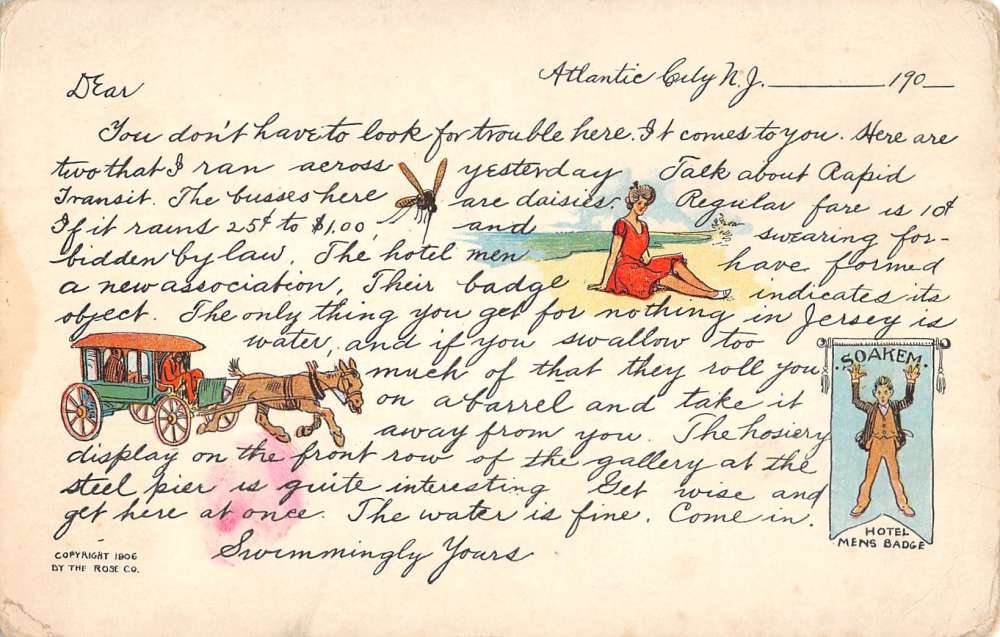 Atlantic City N.J. ________ 190_
Dear
You don't have to look for trouble here. It comes to you. Here are
two that I ran across yesterday Talk about Rapid
Transit. The busses here are daisies. Regular fare is 10¢
If it rains 25¢ to $1.00, and swearing for-
bidden by law. The hotel men have formed
a new association, Their badge indicates its
object. The only thing you get for nothing in Jersey is
water, and if you swallow too
much of that they roll you
on a barrel and take it
away from you. The hosiery
display on the front row of the gallery at the
steel pier is quite interesting Get wise and
get here at once. The water is fine. Come in.
Swimmingly Yours
SOAKEM
HOTEL
MENS BADGE
COPYRIGHT 1906
BY THE ROSE CO.